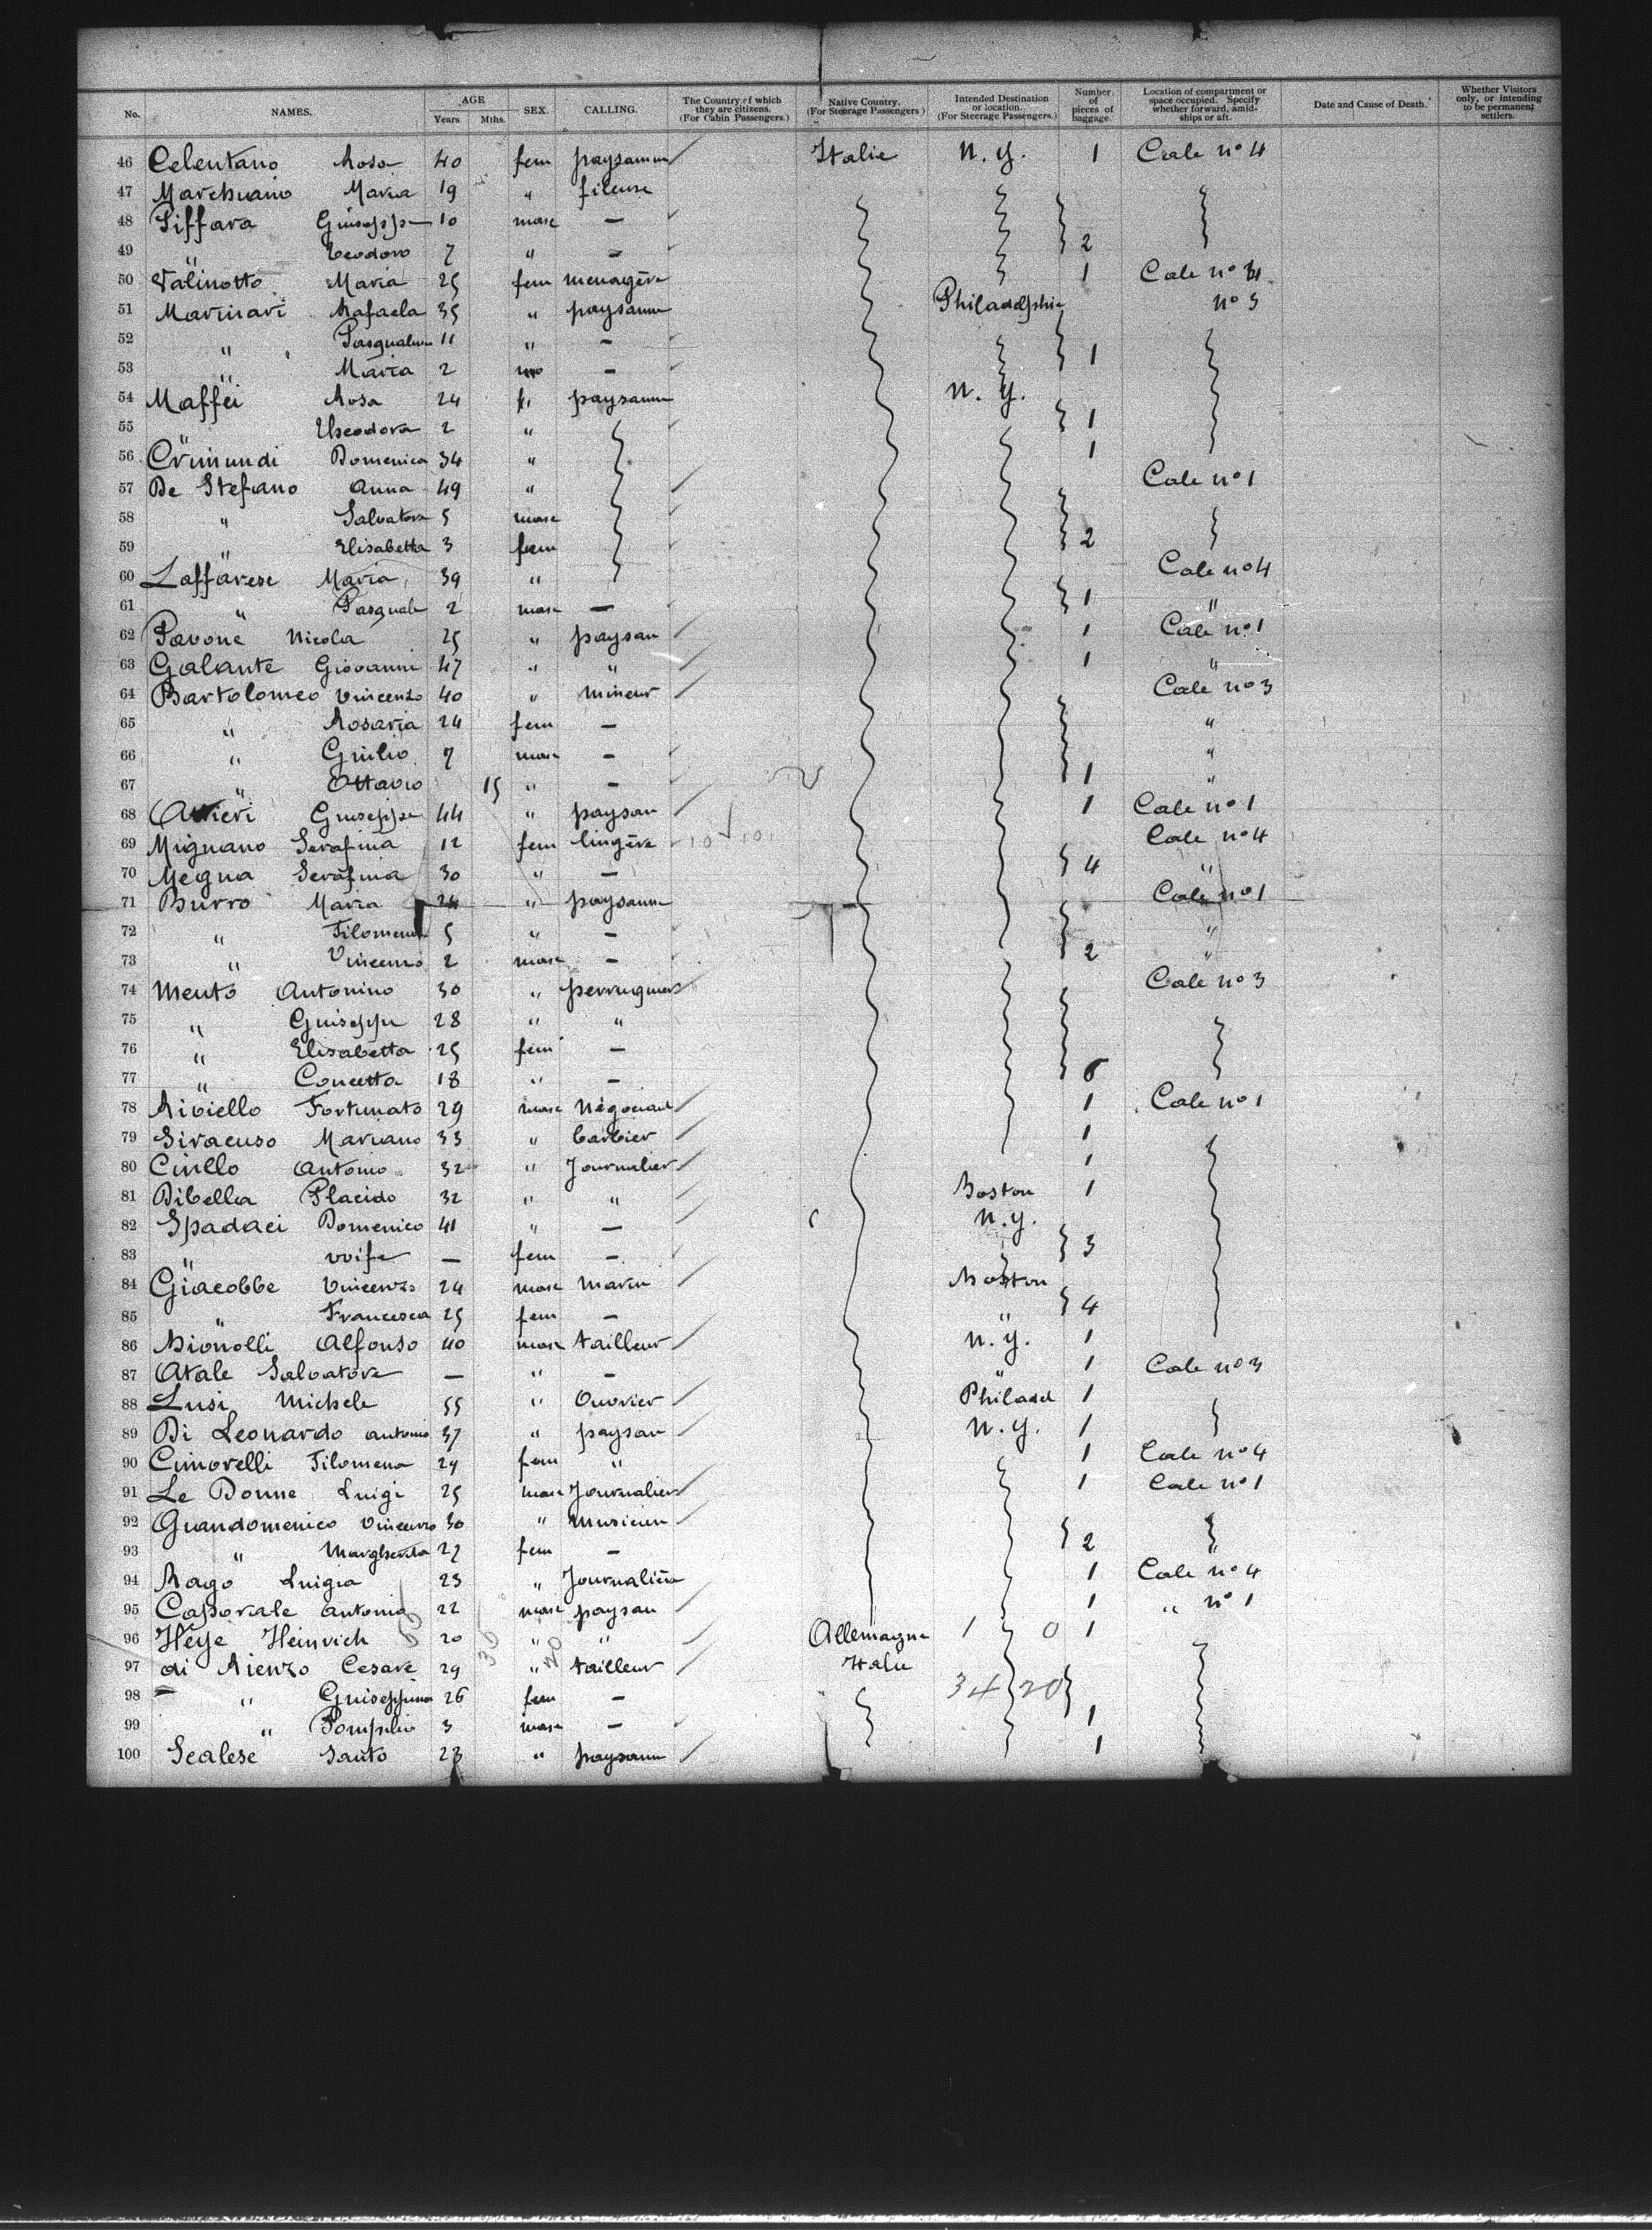 No. NAMES. AGE Years Mths. SEX. CALLING. The Country of which they are citizens. (For Cabin Passengers.) Native Country. (For Steerage Passengers) Intended Destination or location. (For Steerage Passengers.) Number of pieces of baggage. Location of compartment or space occupied. Specify whether forward, amidships or aft. Date and Cause of Death. Whether Visitors only, or intending to be permanent settlers.
46 Celentano Rosa 40 fem paysanne Italie N. Y. 1 Cale no 4
47 Maria 19 " fileuse
48 Giffara Giuseppe 10 masc —
49 " Teodoro 7 " — 2
50 Valinotto Maria 25 fem menagère 1 Cale no
51 Marinari Rafaela 35 " paysanne Philadelphie no 3
52 " 11 " —
53 " Maria 2 — 1
54 Maffei Rosa 24 f. paysanne N. Y.
55 " Theodora 2 " 1
56 Crimundi Domenica 34 " 1
57 De Stefano Anna 49 " Cale no 1
58 " Salvatore 5 masc
59 " Elisabetta 3 fem 2
60 Laffarese Maria 39 " Cale no 4
61 " Pasquale 2 masc — 1 "
62 Pavone Nicola 25 " paysan 1 Cale no 1
63 Galante Giovanni 47 " " 1 "
64 Bartolomeo Vincenzo 40 " mineur Cale no 3
65 " Rosaria 24 fem — "
66 " Giulio 7 masc — "
67 " Ottavio 15 " — 1 "
68 Giuseppe 44 " paysan 1 Cale no 1
69 Mignano Serafina 12 fem lingère 10 10 Cale no 4
70 Megna Serafina 30 " — 4 "
71 Burro Maria 24 " paysanne Cale no 1
72 " Filomena 5 " — "
73 " Vincenzo 2 masc — 2 "
74 Mento Antonino 30 " perruquier Cale no 3
75 " Giuseppe 28 " "
76 " Elisabetta 25 fem —
77 " Concetta 18 " —
78 Aiviello Fortunato 29 masc Négociant 1 Cale no 1
79 Siracuso Mariano 33 " barbier 1
80 Cirillo Antonio 32 " Journalier 1
81 Dibella Placido 32 " " Boston 1
82 Spadaci Domenico 41 " — N. Y.
83 " wife — fem — 3
84 Giacobbe Vincenzo 24 masc Marin Boston
85 " Francesca 25 fem — " 4
86 Alfonso 40 masc tailleur N. Y. 1
87 Atale Salvatore — " — " 1 Cale no 3
88 Lusi Michele 55 " Ouvrier Philadel 1
89 Di Leonardo Antonio 37 " paysan N. Y. 1
90 Cimorelli Filomena 29 fem " 1 Cale no 4
91 Le Donne Luigi 25 masc Journalier 1 Cale no 1
92 Guandomenico Vincenzo 30 " musicien
93 " Margherita 27 fem — 2 "
94 Rago Luigia 23 " Journalière 1 Cale no 4
95 Caporale Antonio 22 masc paysan 1 " no 1
96 Heye Heinrich 20 " " Allemagne 1 0 1
97 di Rienzo Cesare 29 " tailleur Italie
98 " Giuseppina 26 fem — 34 20
99 " Pompilio 3 masc — 1
100 Scalese Santo 23 " paysann 1